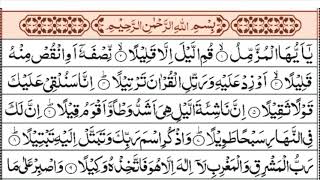 بِسْمِ اللهِ الرَّحْمٰنِ الرَّحِيْمِ
يٰۤاَيُّهَا الْمُزَّمِّلُۙ قُمِ الَّيْلَ اِلَّا قَلِيْلًاۙ نِّصْفَهٗۤ اَوِ انْقُصْ مِنْهُ
قَلِيْلًاۙ اَوْ زِدْ عَلَيْهِ وَ رَتِّلِ الْقُرْاٰنَ تَرْتِيْلًاؕ اِنَّا سَنُلْقِيْ عَلَيْكَ
قَوْلًا ثَقِيْلًا اِنَّ نَاشِئَةَ الَّيْلِ هِيَ اَشَدُّ وَطْاً وَّ اَقْوَمُ قِيْلًاؕ اِنَّ لَكَ
فِي النَّهَارِ سَبْحًا طَوِيْلًاؕ وَ اذْكُرِ اسْمَ رَبِّكَ وَ تَبَتَّلْ اِلَيْهِ تَبْتِيْلًاؕ
رَبُّ الْمَشْرِقِ وَ الْمَغْرِبِ لَاۤ اِلٰهَ اِلَّا هُوَ فَاتَّخِذْهُ وَكِيْلًا وَ اصْبِرْ عَلٰى مَا